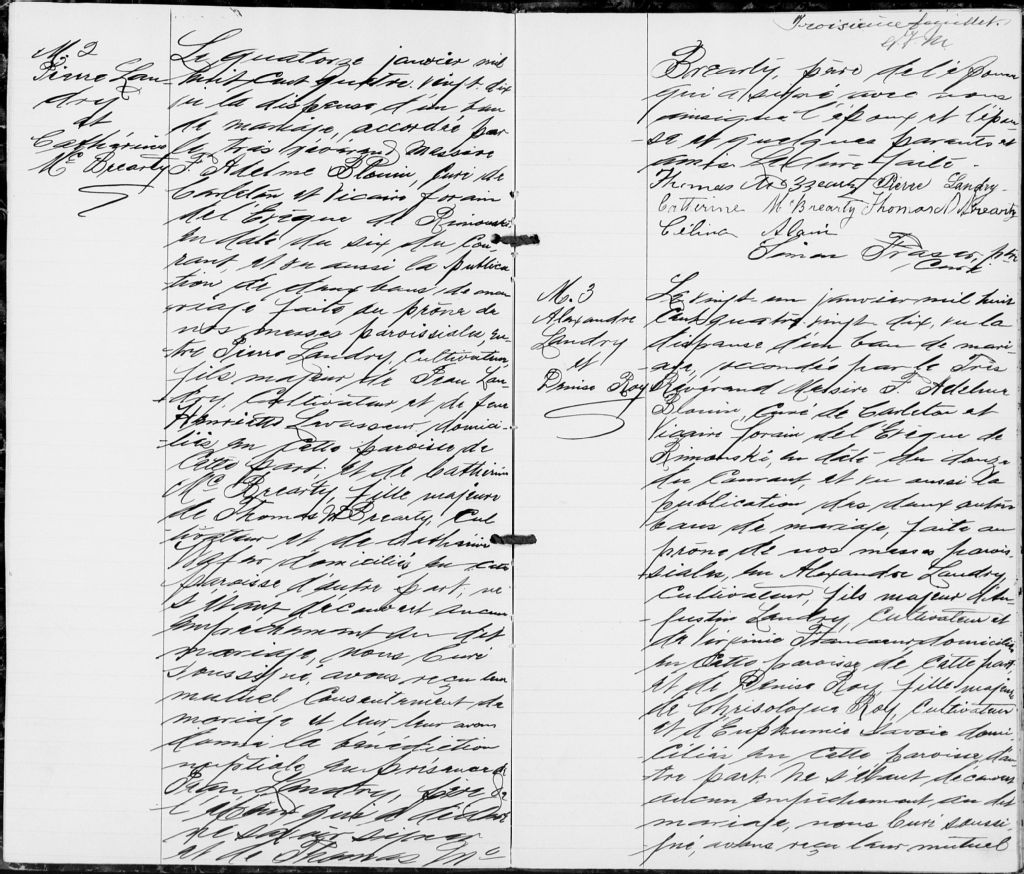 M. 2
Pierre Lan-
dry
et
Catherine
Mc Brearty
Le quatorze janvier mil
huit cent quatre-vingt-dix
vu la dispense d'un ban
de mariage, accordée par
le très révérend Messire
F. Adelme Blouin, curé de
Carleton et Vicaire forain
de l'Évêque de Rimouski
en date du six du cou-
rant, et vu aussi la publica
tion de deux bans de ma
riage faite au prône de
nos messes paroissiales, en-
tre Pierre Landry, cultivateur,
fils majeur de Jean Lan-
dry, cultivateur et de feue
Henriette Levasseur, domici-
liés en cette paroisse de
cette part, et de Catherine
Mc Brearty, fille majeure
de Thomas McBrearty, cul
tivateur et de Catherine
domiciliés en cette
paroisse d'autre part, ne
s'étant découvert aucun
empêchement au dit
mariage, nous Curé
soussigné, avons reçu leur
mutuel consentement de
mariage et leur avons
donné la bénédiction
nuptiale en présence de
Jean Landry, père de
l'époux qui a déclaré
ne savoir signer
et de Thomas Mc
Troisième feuillet.
Brearty, père de l'épouse
qui a signé avec nous
ainsi que l'époux et l'épou-
se et quelques parents et
amis. Lecture faite.
Thomas Mc Brearty Pierre Landry
Catherine McBrearty Thomas McBrearty
Célina Alain
Simon Fraser, ptre
Curé
M. 3
Alexandre
Landry
et
Denise Roy
Le vingt un janvier mil huit
cent quatre vingt dix, vu la
dispense d'un ban de mari-
age, accordée par le Très
Révérend Messire F. Adelme
Blouin, Curé de Carleton et
Vicaire forain de l'Évêque de
Rimouski, en date du douze
du courant, et vu aussi la
publication des deux autres
bans de mariage, faite au
prône de nos messes parois-
siales, en Alexandre Landry
cultivateur, fils majeur d'Au-
gustin Landry, cultivateur et
de Virginie Francoeur, domiciliés
en cette paroisse de cette part
et de Denise Roy, fille majeure
de Chrisologue Roy, cultivateur
et d'Euphemie Savoie domi-
ciliés en cette paroisse, d'au-
tre part. Ne s'étant découvert
aucun empêchement au dit
mariage, nous Curé soussi-
gné, avons reçu leur mutuel